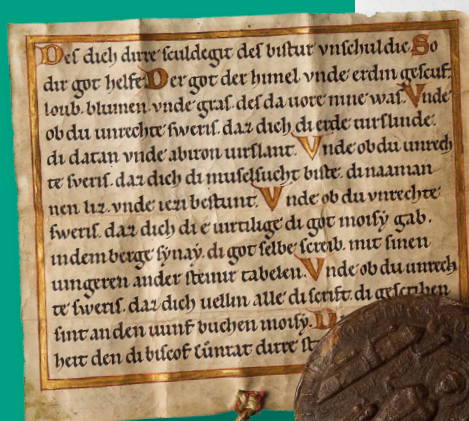 Des dich dirre sculdegit des bistur vnschuldic. So
dir got helfe. Der got der himel vnde erdin gescuf.
loub. blumen. vnde gras. des da uore nine was. Vnde
ob du unrechte sweris. daz dich di erde uirslinde.
di datan vnde abiron uirslant. Vnde ob du unrech
te sveris. daz dich di muselsucht biste. di naaman
nen liz. vnde iezi bestunt. Vnde ob du vnrechte
sweris. daz dich di e uirtilige di got moisy gab.
indem berge sẏnaẏ. di got selbe screib. mit sinen
uingeren ander steinir tabelen. Vnde ob du unrech
te sweris. daz dich uellin alle di scrift. di gescriben
sint an den uunf buchen moisẏ. D
heit den di biscof cůnrat dirre st